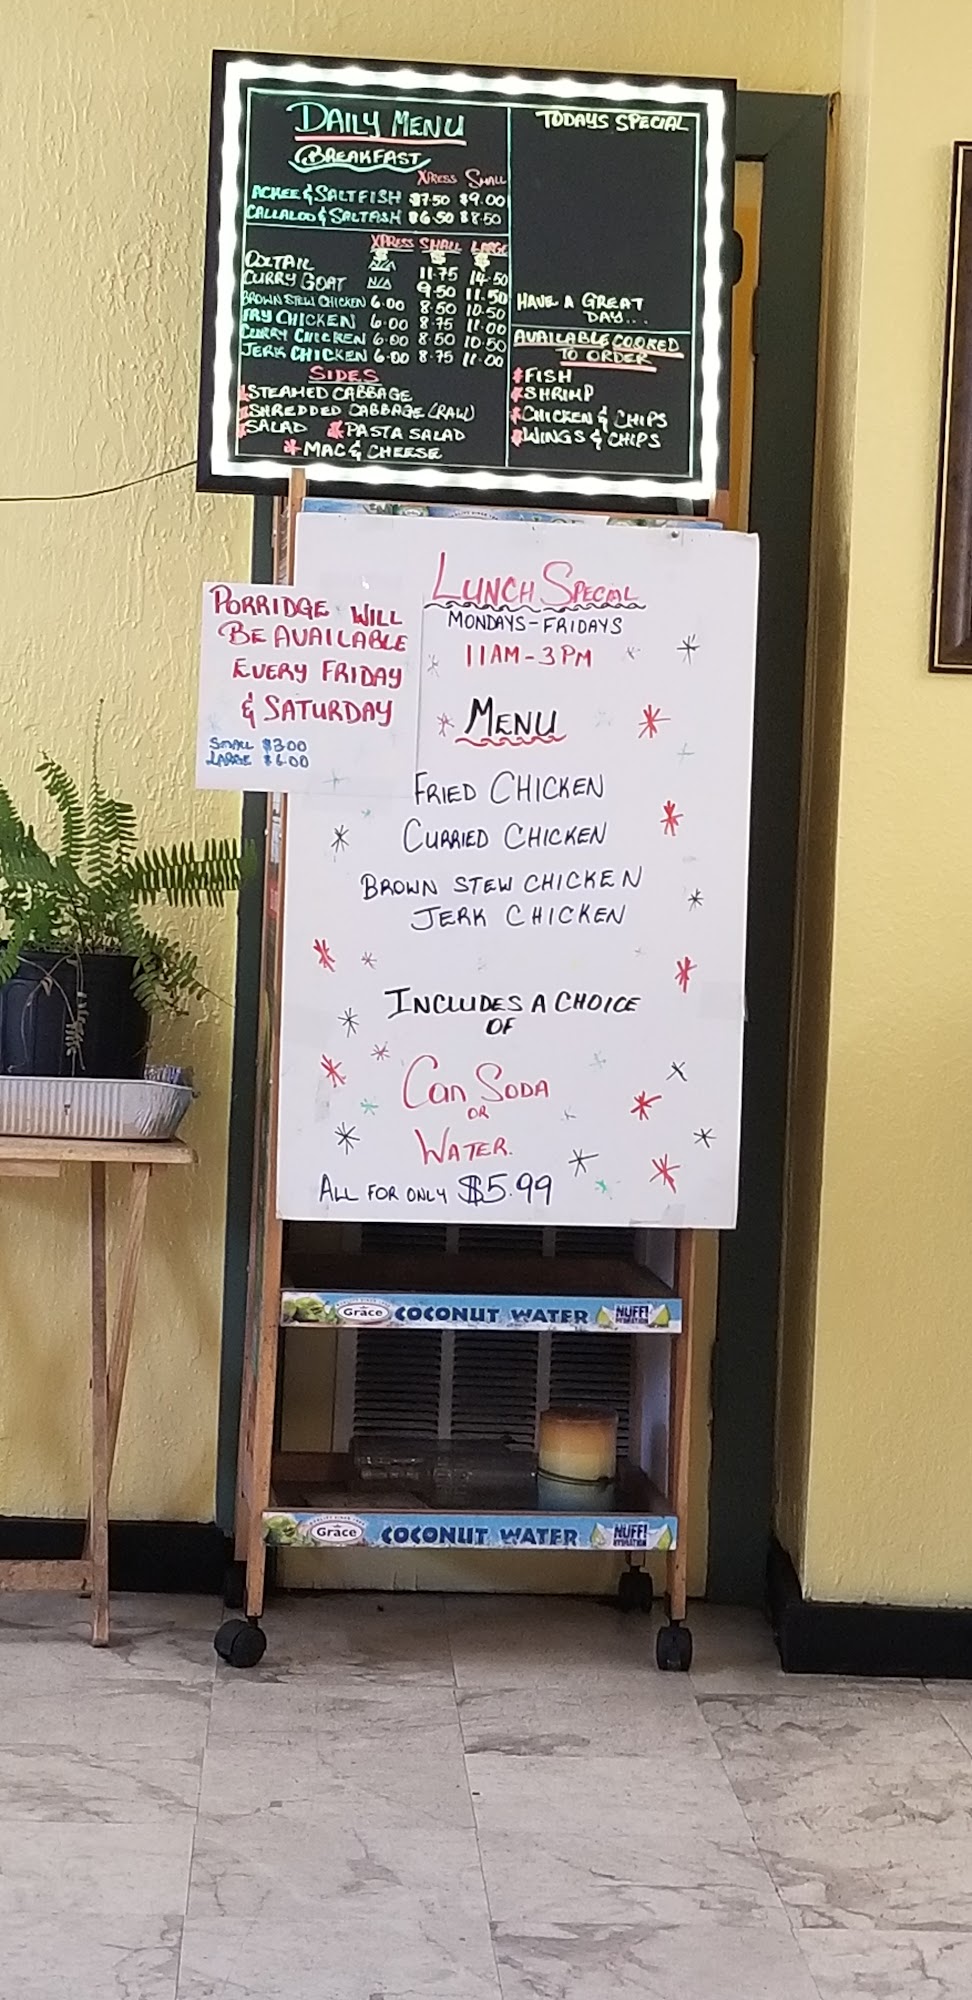 DAILY MENU
BREAKFAST
XPRESS SMALL
ACKEE & SALTFISH $7.50 $9.00
CALLALOO & SALTFISH $6.50 $8.50
XPRESS SMALL LARGE
$ $ $
OXTAIL N/A 11.75 14.50
CURRY GOAT N/A 9.50 11.50
BROWN STEW CHICKEN 6.00 8.50 10.50
FRY CHICKEN 6.00 8.75 11.00
CURRY CHICKEN 6.00 8.50 10.50
JERK CHICKEN 6.00 8.75 11.00
SIDES
*STEAMED CABBAGE
*SHREDDED CABBAGE (RAW)
*SALAD *PASTA SALAD
*MAC & CHEESE
TODAYS SPECIAL
HAVE A GREAT
DAY...
AVAILABLE COOKED
TO ORDER
*FISH
*SHRIMP
*CHICKEN & CHIPS
*WINGS & CHIPS
PORRIDGE WILL
BE AVAILABLE
EVERY FRIDAY
& SATURDAY
SMALL $3.00
LARGE $6.00
LUNCH SPECIAL
MONDAYS-FRIDAYS
11AM-3PM
MENU
FRIED CHICKEN
CURRIED CHICKEN
BROWN STEW CHICKEN
JERK CHICKEN
INCLUDES A CHOICE
OF
Can SODA
OR
WATER.
ALL FOR ONLY $5.99
Grace COCONUT WATER NUFF!
HYDRATION
Grace COCONUT WATER NUFF!
HYDRATION